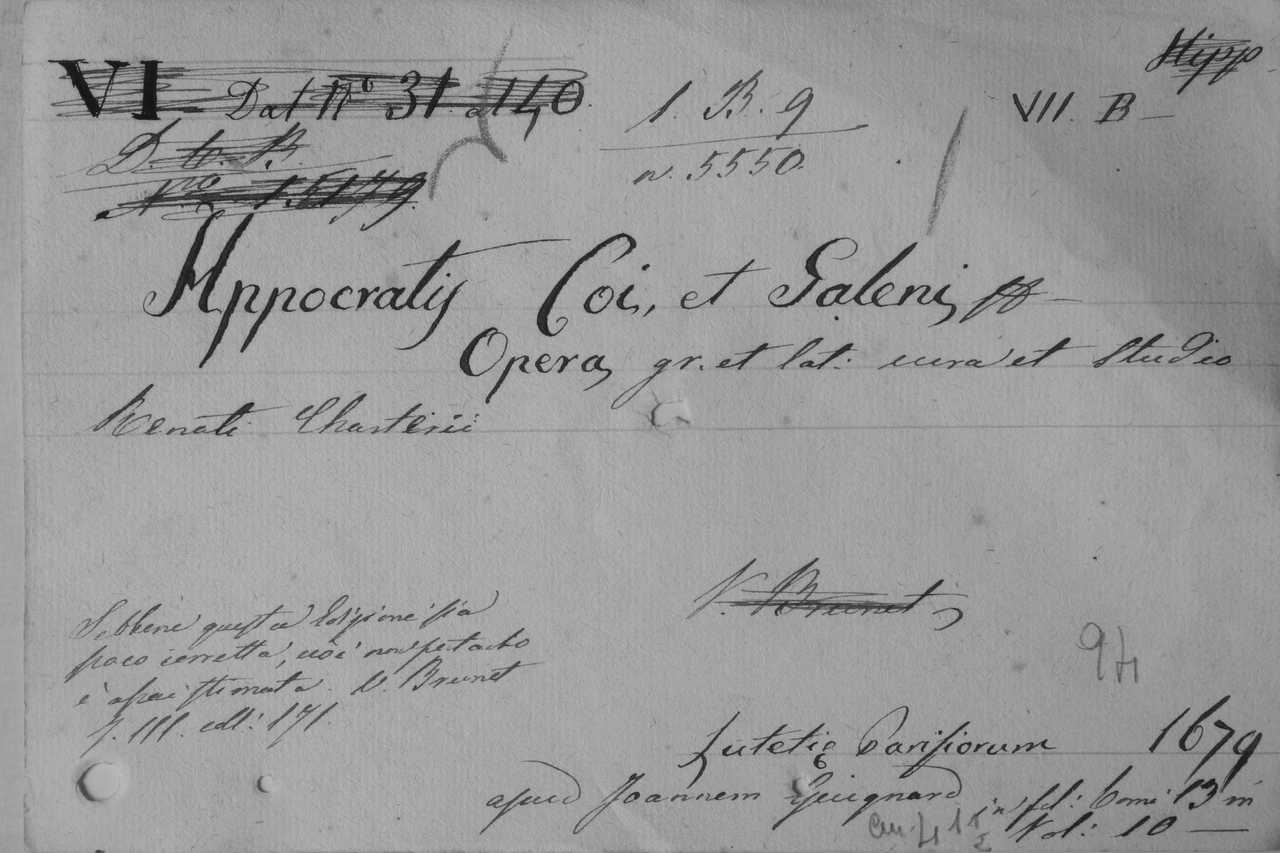 Hippo
VI Dal N.º 31. al 40. 1. B. 9 VII. B -
D. to. B.
n. 5550.
N.º
Hppocratis Coi, et Galeni
Opera, gr. et lat. cura et studio
Renati Charterii
V. Brunet
Sebbene questa Edizione sia
poco corretta, ciò non pertanto
è assai stimata. V. Brunet
T. III. coll: 171.
94
Lutetię Parisiorum 1679
apud Joannem Guignard in fol: Tomi 13 in
Vol: 10 —